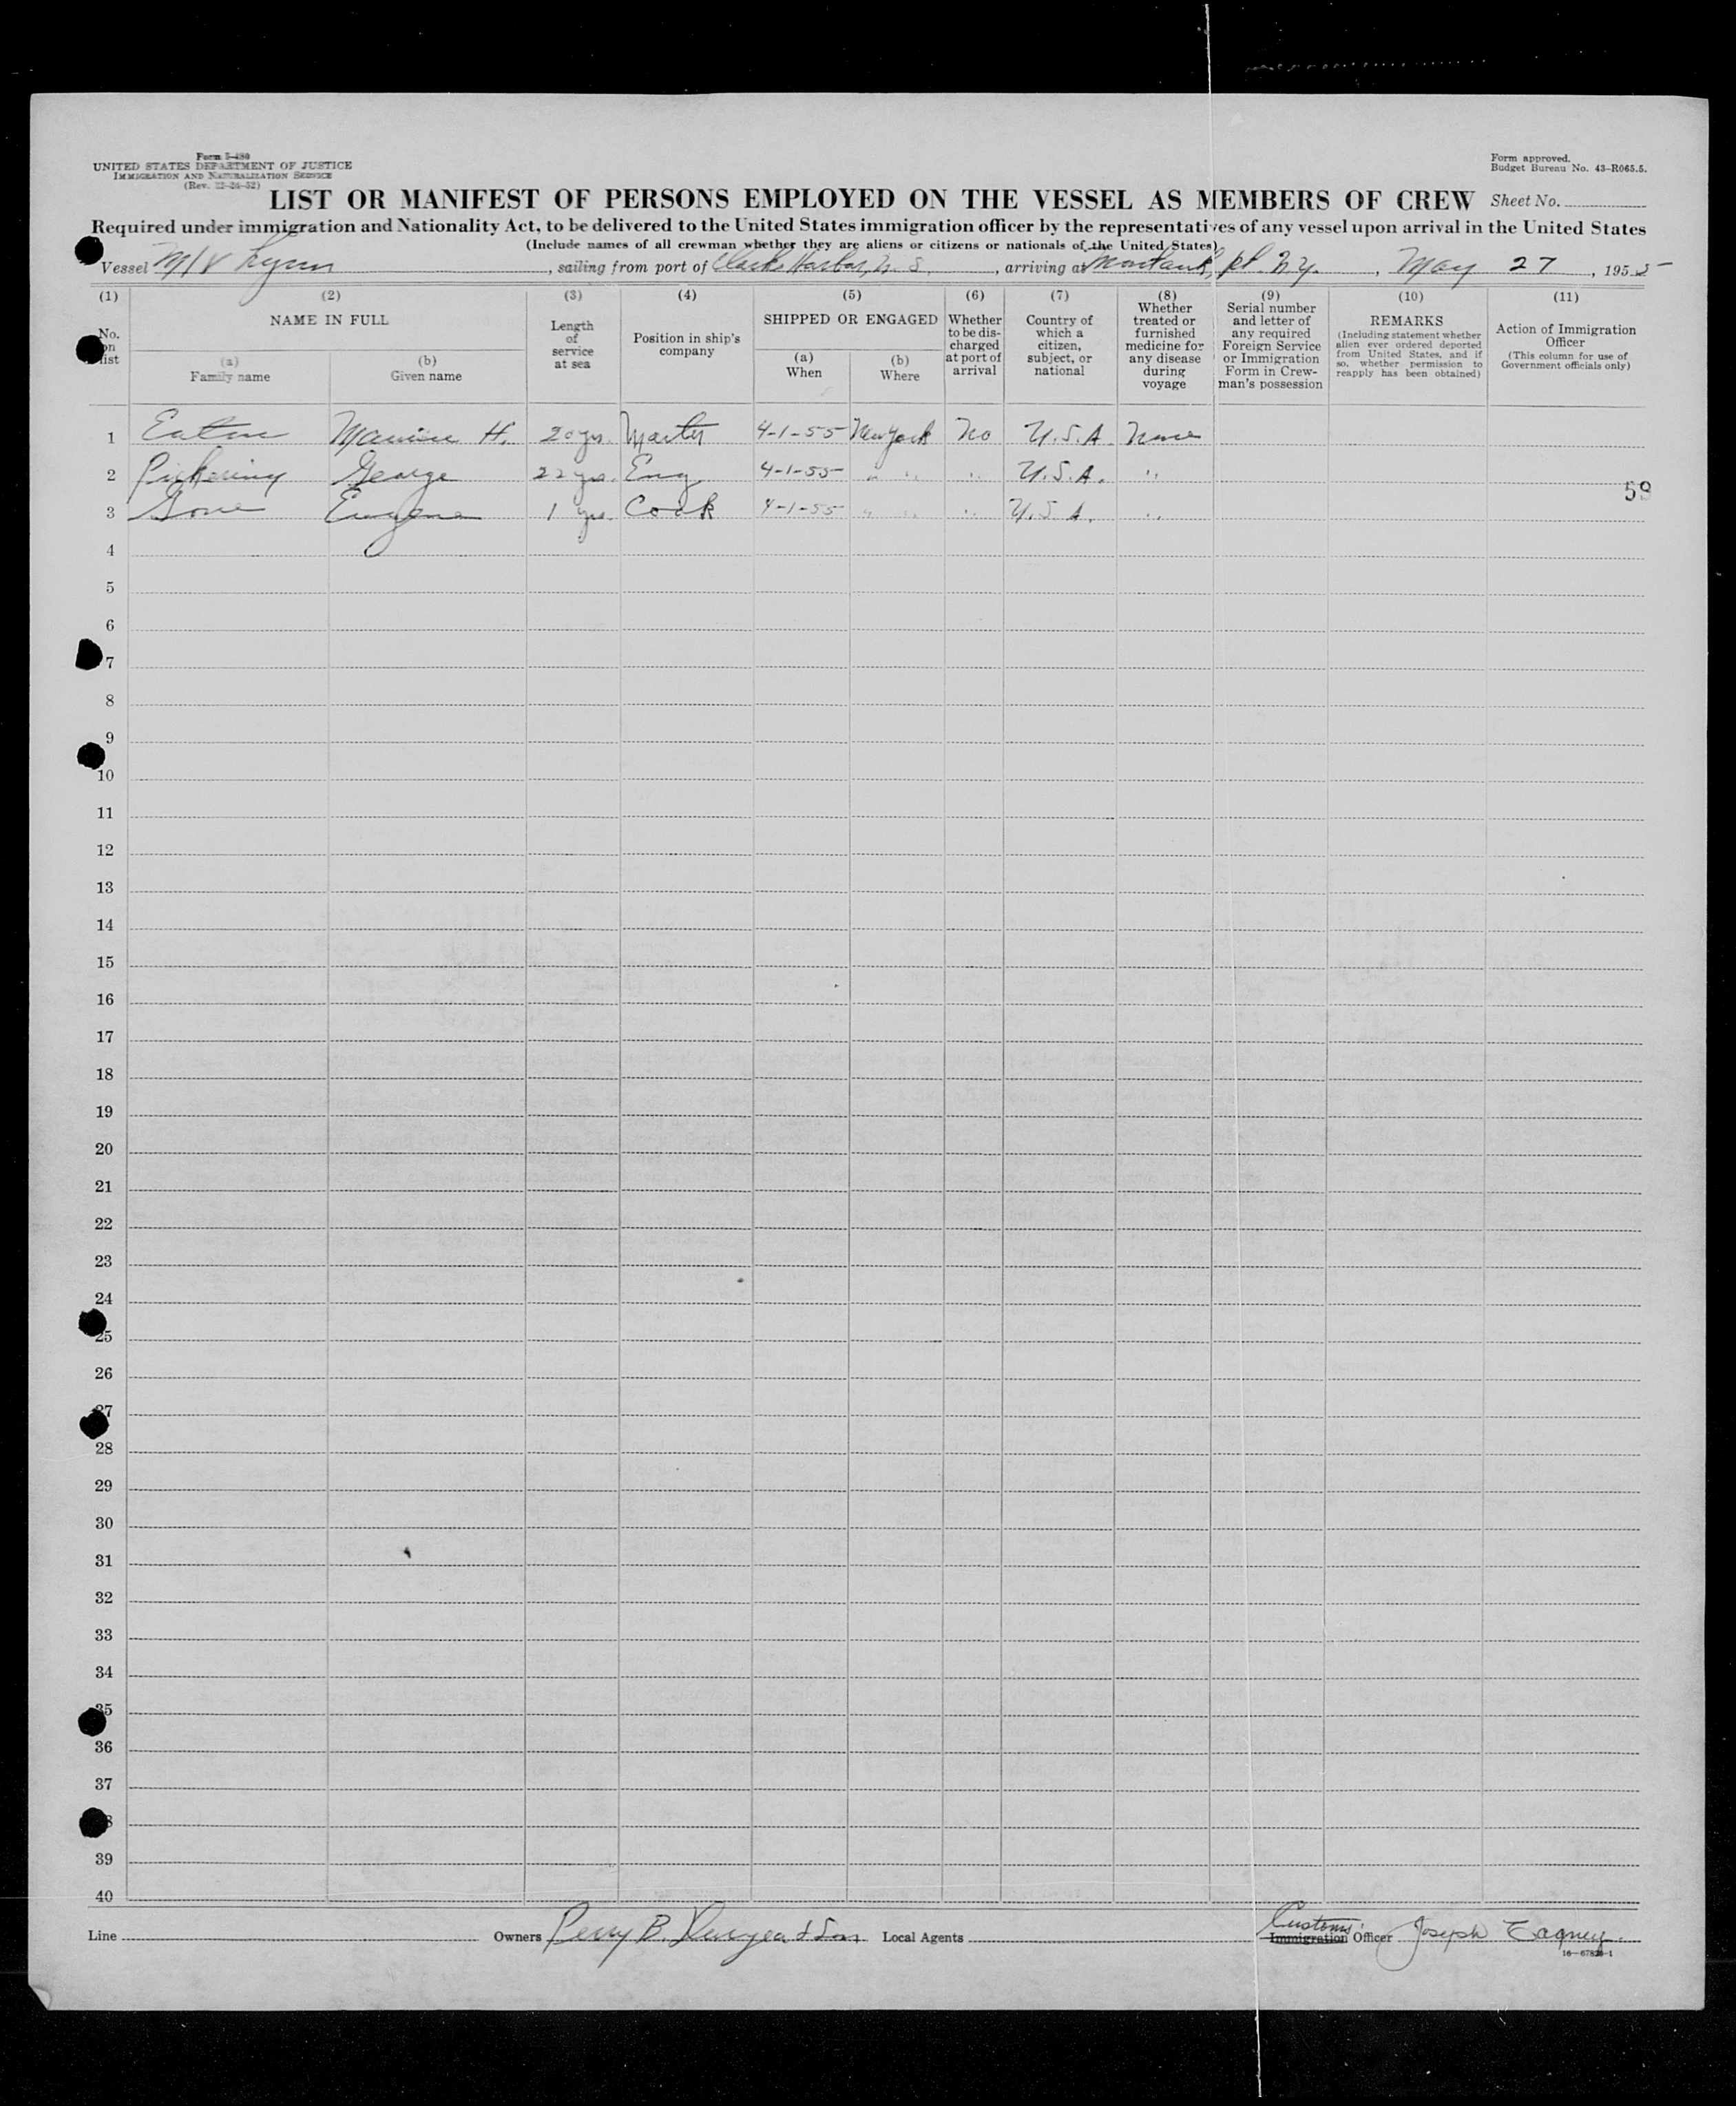 Form I-480
UNITED STATES DEPARTMENT OF JUSTICE
IMMIGRATION AND NATURALIZATION SERVICE
(Rev. 12-24-52)
Form approved.
Budget Bureau No. 43-R065.5.
LIST OR MANIFEST OF PERSONS EMPLOYED ON THE VESSEL AS MEMBERS OF CREW Sheet No.
Required under immigration and Nationality Act, to be delivered to the United States immigration officer by the representatives of any vessel upon arrival in the United States
(Include names of all crewman whether they are aliens or citizens or nationals of the United States)
Vessel M/V Lynn, sailing from port of Clarks Harbor, N. S., arriving at Montauk, pt. N.Y., May 27, 1955
(1) No. on list
(2) NAME IN FULL
(a) Family name
(b) Given name
(3) Length of service at sea
(4) Position in ship's company
(5) SHIPPED OR ENGAGED
(a) When
(b) Where
(6) Whether to be discharged at port of arrival
(7) Country of which a citizen, subject, or national
(8) Whether treated or furnished medicine for any disease during voyage
(9) Serial number and letter of any required Foreign Service or Immigration Form in Crewman's possession
(10) REMARKS (Including statement whether alien ever ordered deported from United States, and if so, whether permission to reapply has been obtained)
(11) Action of Immigration Officer (This column for use of Government officials only)
1 Eaton Maurice H. 20 yrs. Master 4-1-55 New York No U.S.A None
2 Pickering George 22 yrs. Eng 4-1-55 " " " U.S.A. "
59
3 Gove Eugene 1 yrs. Cook 4-1-55 " " " U.S.A. "
4
5
6
7
8
9
10
11
12
13
14
15
16
17
18
19
20
21
22
23
24
25
26
27
28
29
30
31
32
33
34
35
36
37
38
39
40
Line Owners Perry B. Duryea & Son Local Agents Customs Immigration Officer Joseph Cagney